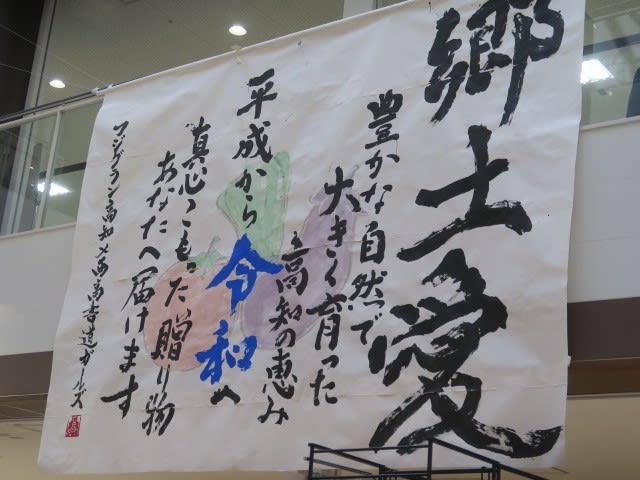 郷土愛
豊かな自然で
大きく育った
高知の恵み
平成から令和へ
真心こもった贈り物
あなたへ届けます
フジグラン高知×西高書道ガールズ